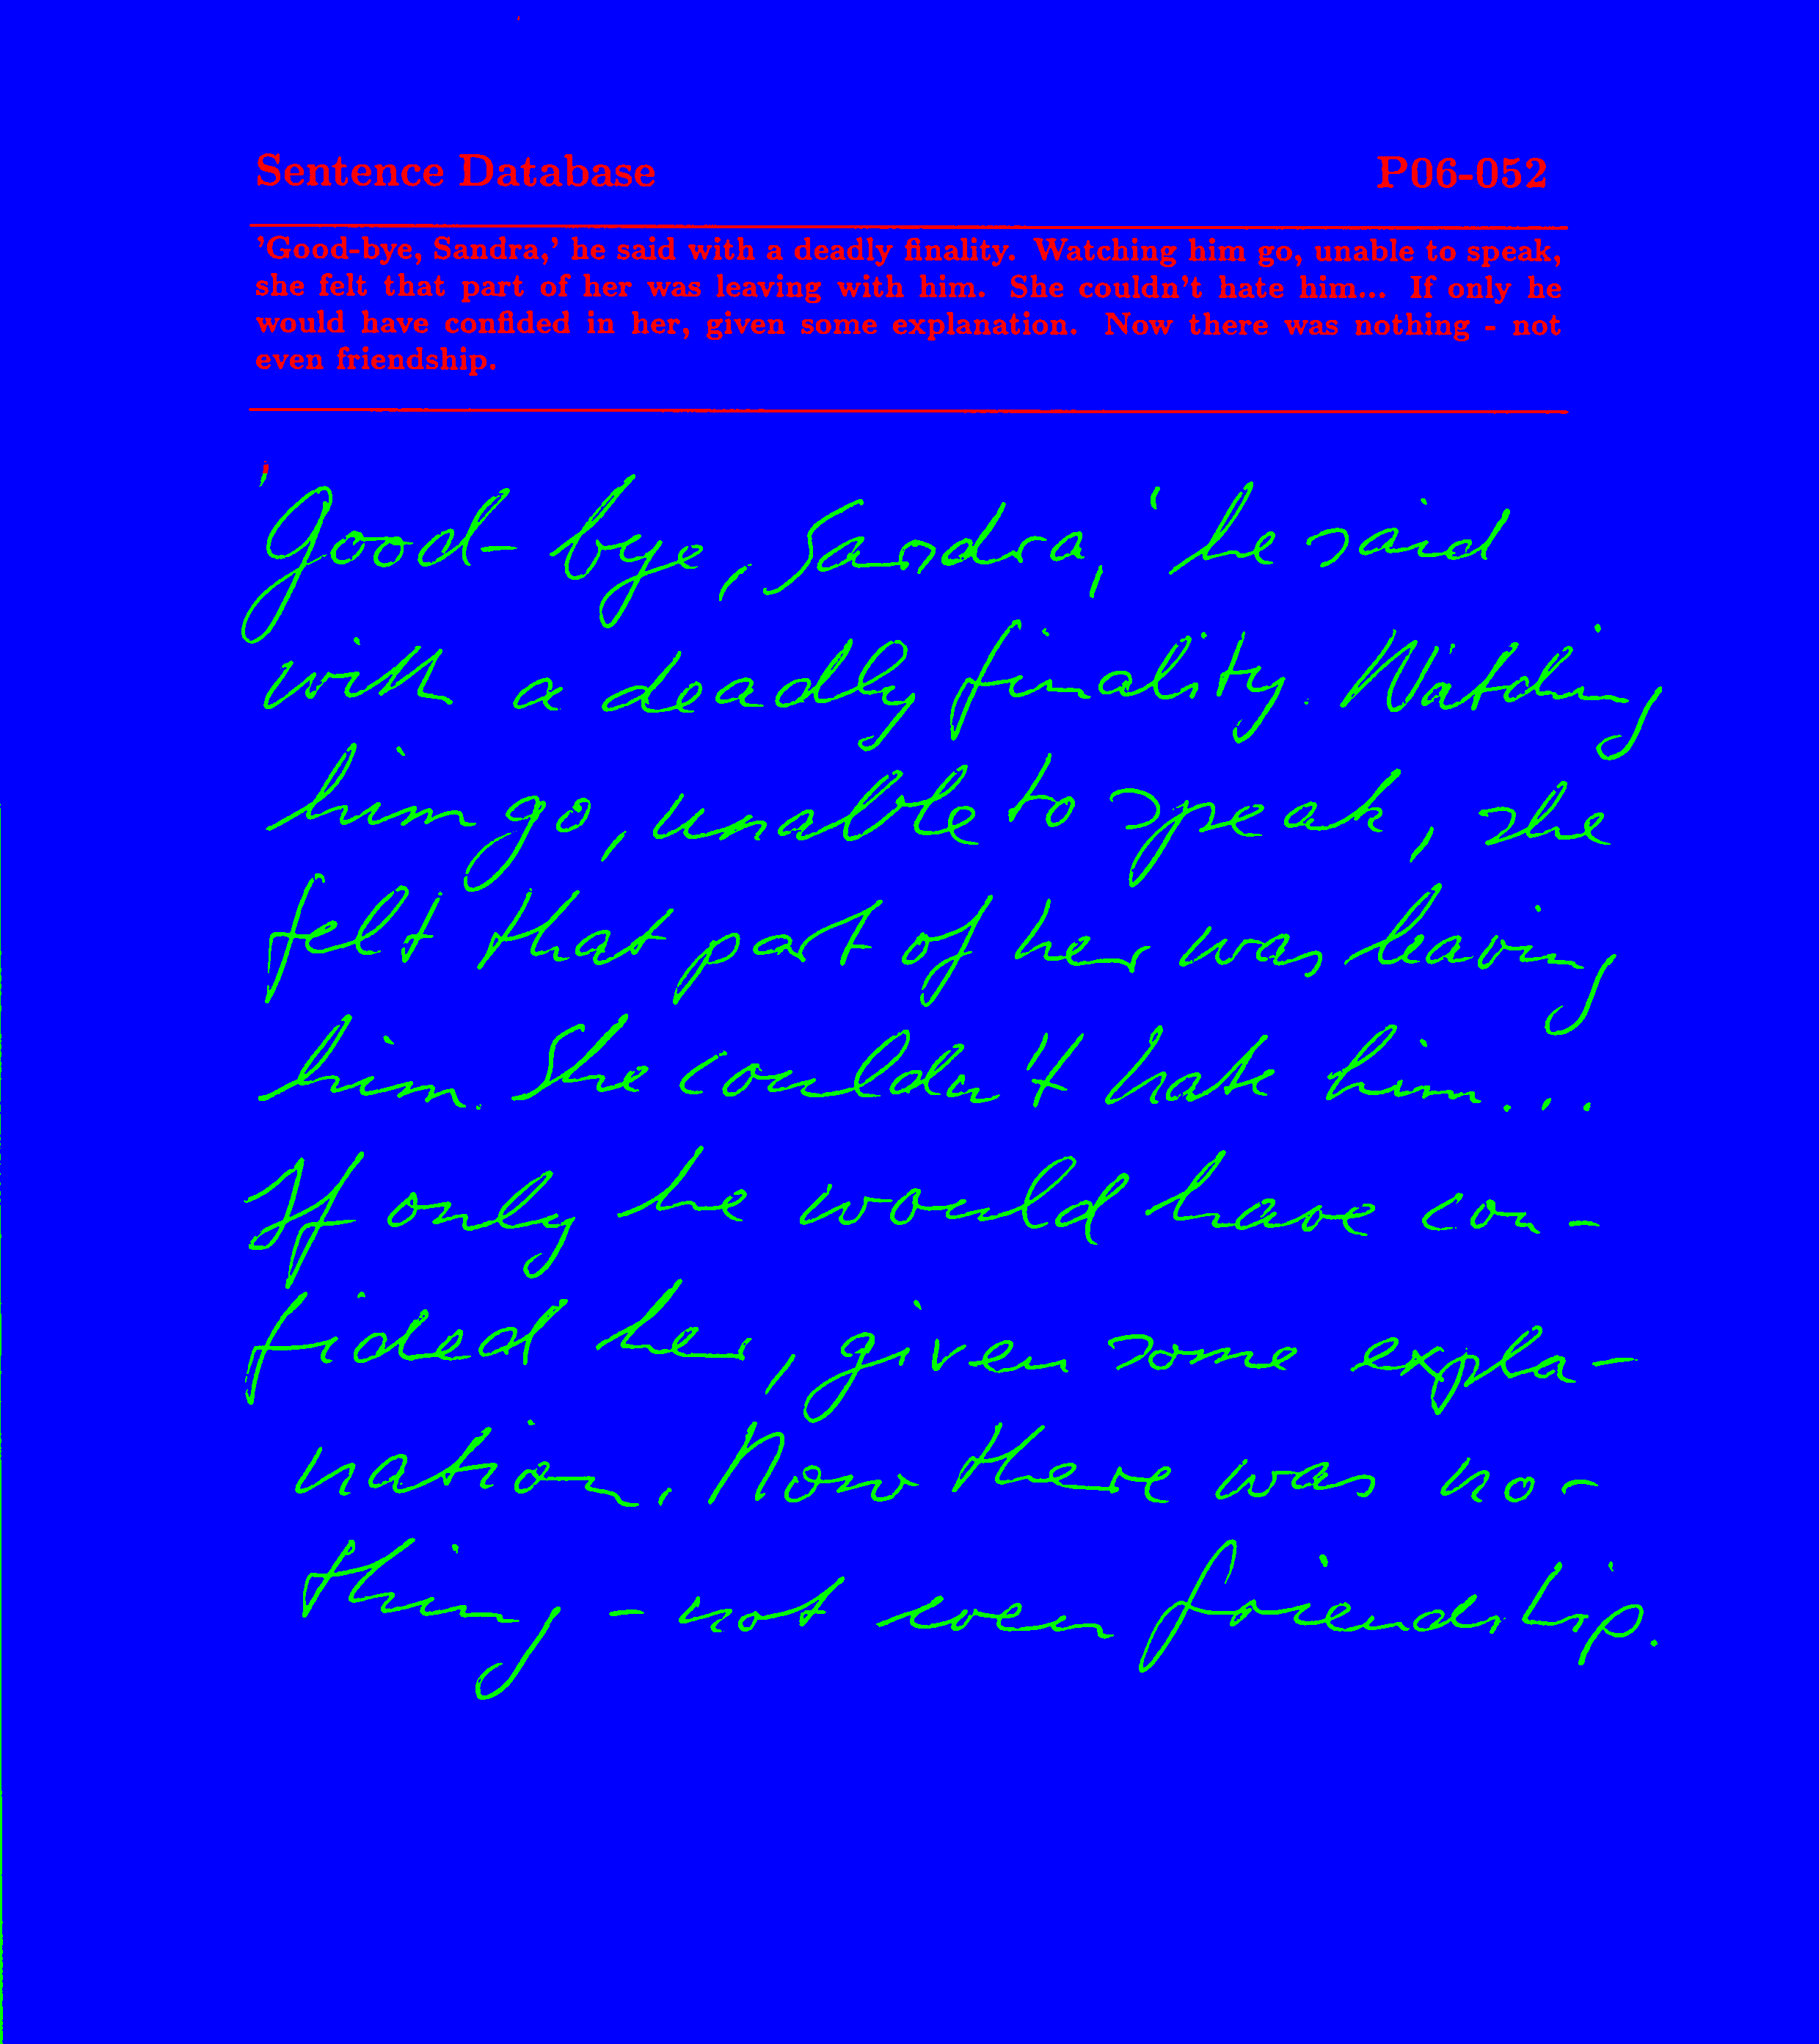 Sentence Database P06-052
'Good-bye, Sandra,' he said with a deadly finality. Watching him go, unable to speak,
she felt that part of her was leaving with him. She couldn't hate him... If only he
would have confided in her, given some explanation. Now there was nothing - not
even friendship.
'Good-bye, Sandra,' he said
with a deadly finality. Watching
him go, unable to speak, she
felt that part of her was leaving
him. She couldn't hate him...
If only he would have con-
fided her, given some expla-
nation. Now there was no-
thing - not even friendship.